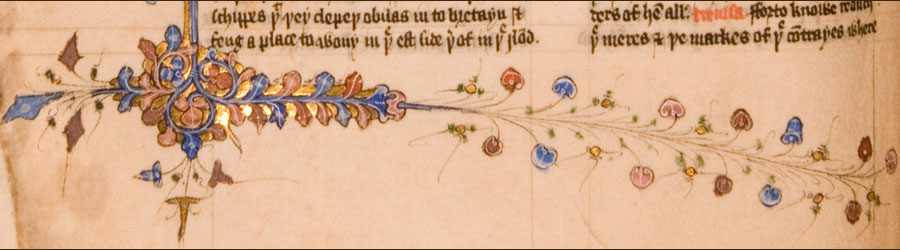 schippes þͭ þey clepeþ obulas in to bretayn &
feng a place to wony in þͤ est side þͭ of in þͤ ylōd.
ters of hē all. Treuisa fforto knowe
þͤ meres & þe markes of þͤ cōtrayes where